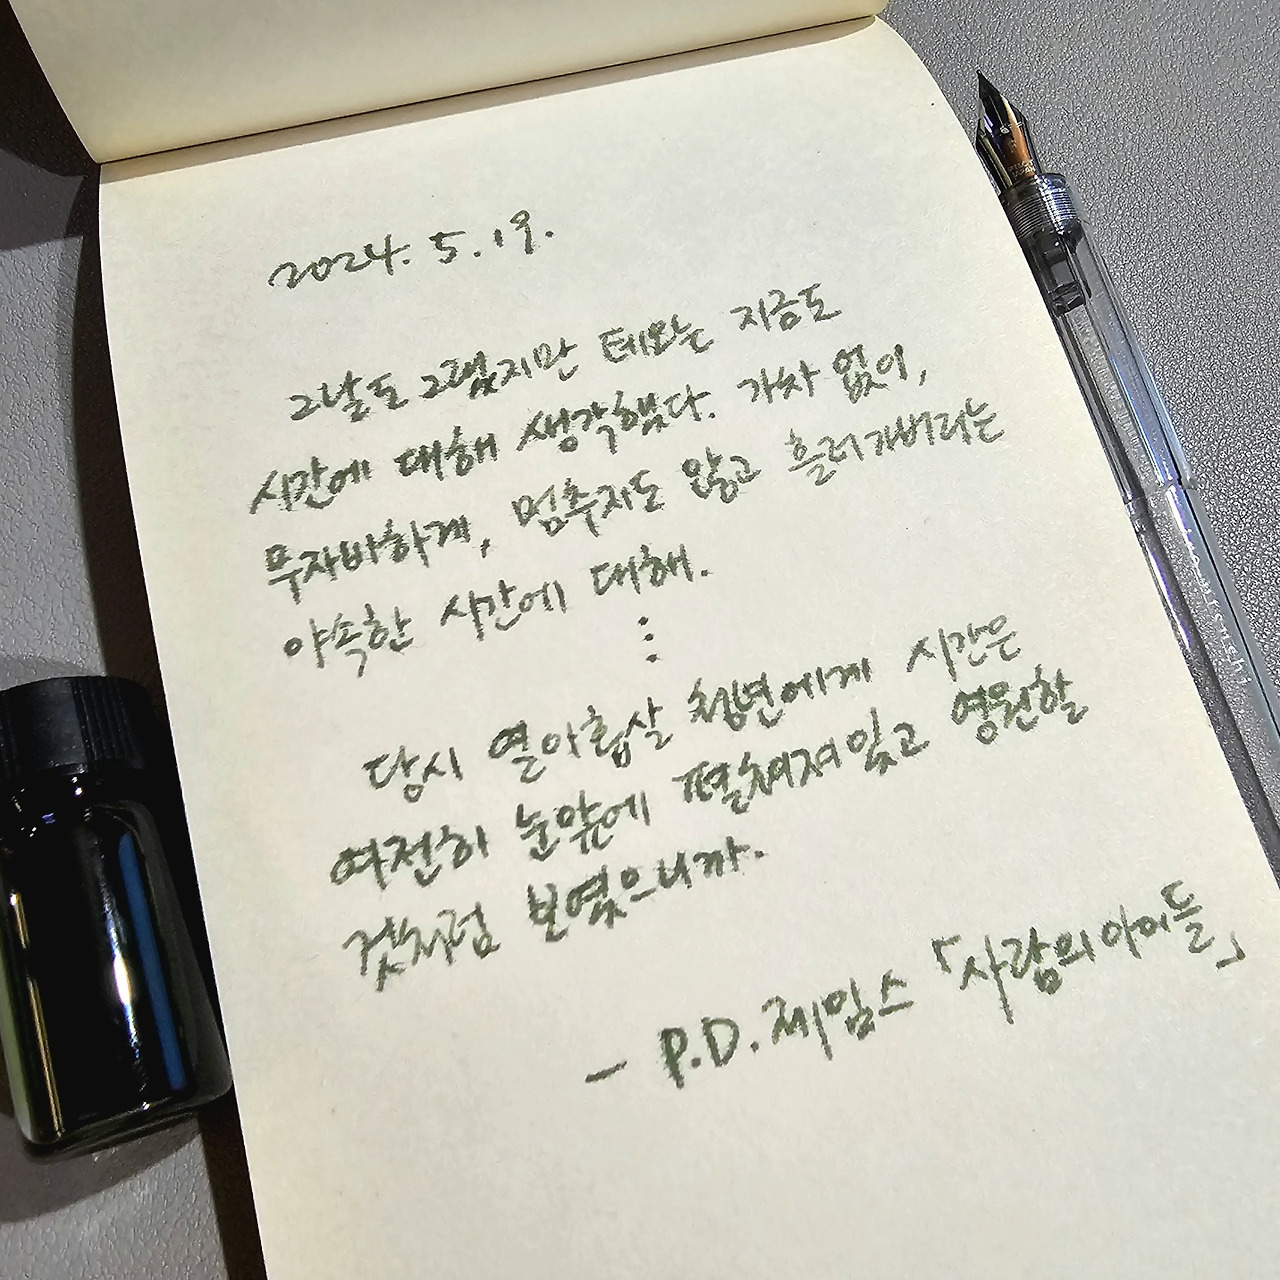 2024. 5. 19.
그날도 그랬지만 테오는 지금도
시간에 대해 생각했다. 가차 없이,
무자비하게, 멈추지도 않고 흘러가버리는
야속한 시간에 대해.
⋮
당시 열아홉살 청년에게 시간은
여전히 눈앞에 펼쳐져있고 영원할
것처럼 보였으니까.
– P.D. 제임스 「사람의 아이들」